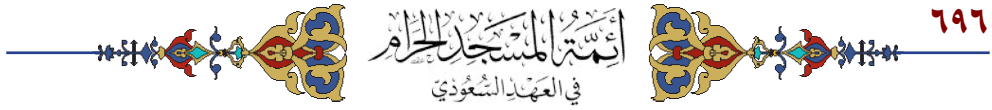 ٦٩٦
أَئِمَّةُ المَسْجِدِ الحَرَامِ
في العَهْدِ السُّعُودِيّ